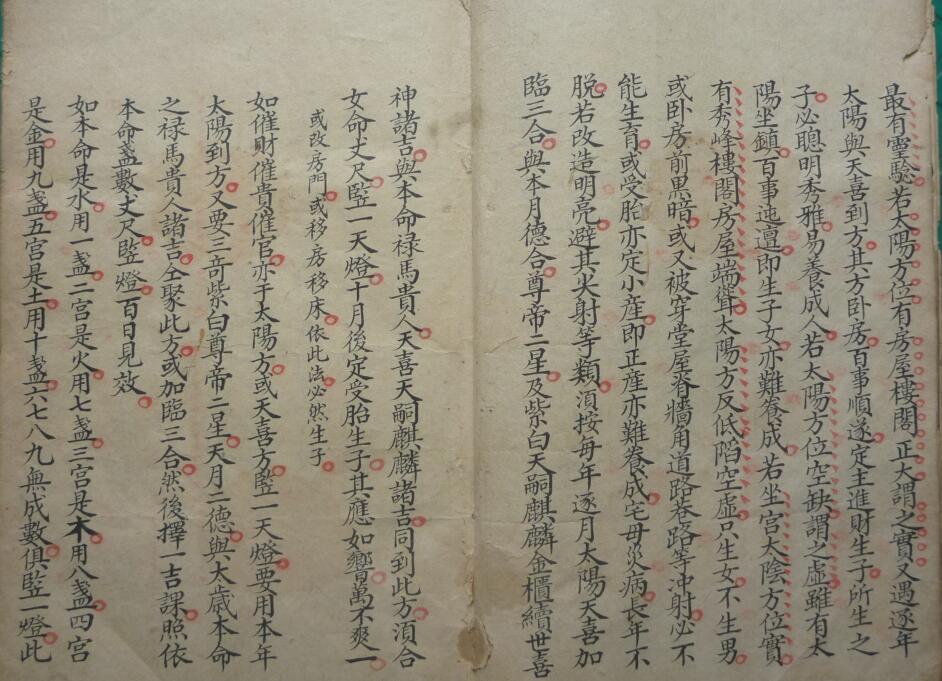 最有灵騐若太陽方位有房屋樓閣正大謂之實又遇逐年
太陽與天喜到方其方卧房百事順遂定主進財生子所生之
子必聰明秀雅易養成人若太陽方位空缺謂之虛雖有太
陽坐鎮百事迍邅即生子女亦難養成若坐宮太陰方位實
有秀峰樓閣房屋端聳太陽方反低陷空虛只生女不生男
或卧房前黑暗或又被穿堂屋脊牆角道路巷路等冲射必不
能生育或受胎亦定小産即正産亦難養成宅母災病長年不
脱若改造明亮避其尖射等類須按每年逐月太陽天喜加
臨三合與本月德合尊帝二星及紫白天嗣麒麟金櫃續世喜
神諸吉與本命禄馬貴人天喜天嗣麒麟諸吉同到此方須合
女命丈尺竪一天燈十月後定受胎生子其應如響萬不爽一
或改房門或移房移床依此法必然生子
如催財催貴催官亦于太陽方或天喜方竪一天燈要用本年
太陽到方又要三竒紫白尊帝二星天月二德與太歳本命
之禄馬貴人諸吉仝聚此方或加臨三合然後擇一吉課照依
本命盞數丈尺竪燈百日見效
如本命是水用一盞二宮是火用七盞三宮是木用八盞四宮
是金用九盞五宮是土用十盞六七八九無成數俱竪一燈此